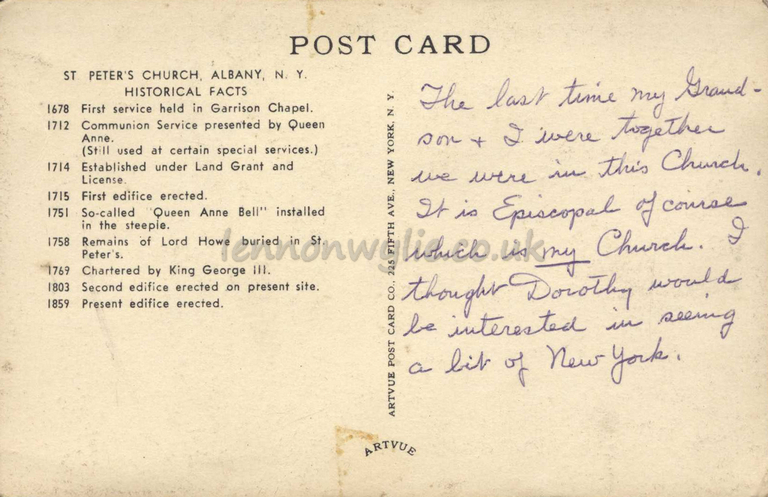 POST CARD
ST. PETER'S CHURCH, ALBANY, N. Y.
HISTORICAL FACTS
1678 First service held in Garrison Chapel.
1712 Communion Service presented by Queen
Anne.
(Still used at certain special services.)
1714 Established under Land Grant and
License.
1715 First edifice erected.
1751 So-called "Queen Anne Bell" installed
in the steeple.
1758 Remains of Lord Howe buried in St.
Peter's.
1769 Chartered by King George III.
1803 Second edifice erected on present site.
1859 Present edifice erected.
ARTVUE POST CARD CO., 225 FIFTH AVE., NEW YORK, N. Y.
The last time my Grand-
son + I were together
we were in this Church.
It is Episcopal of course
which is my Church. I
thought Dorothy would
be interested in seeing
a bit of New York.
lennonwylie.co.uk
ARTVUE